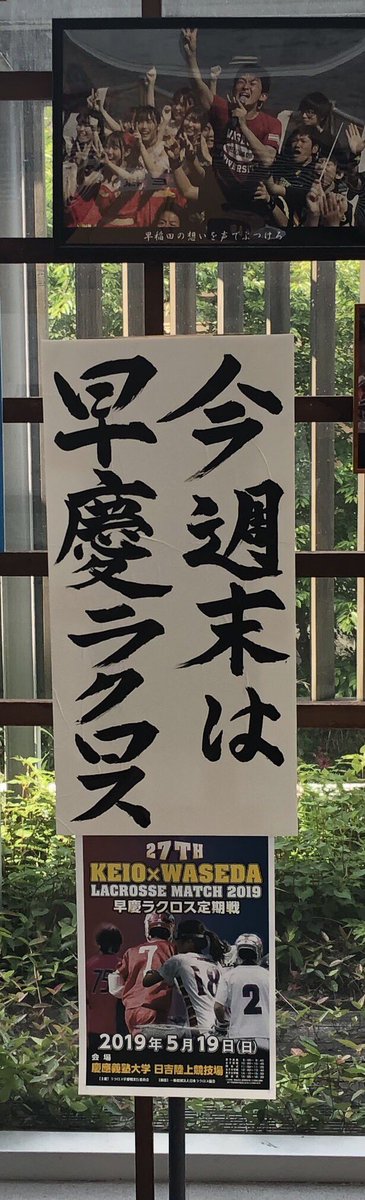 早稲田の想いを声でぶつけろ
今週末は
早慶ラクロス
27TH
KEIO×WASEDA
LACROSSE MATCH 2019
早慶ラクロス定期戦
7
18
2
2019年5月19日(日)
会場
慶應義塾大学 日吉陸上競技場